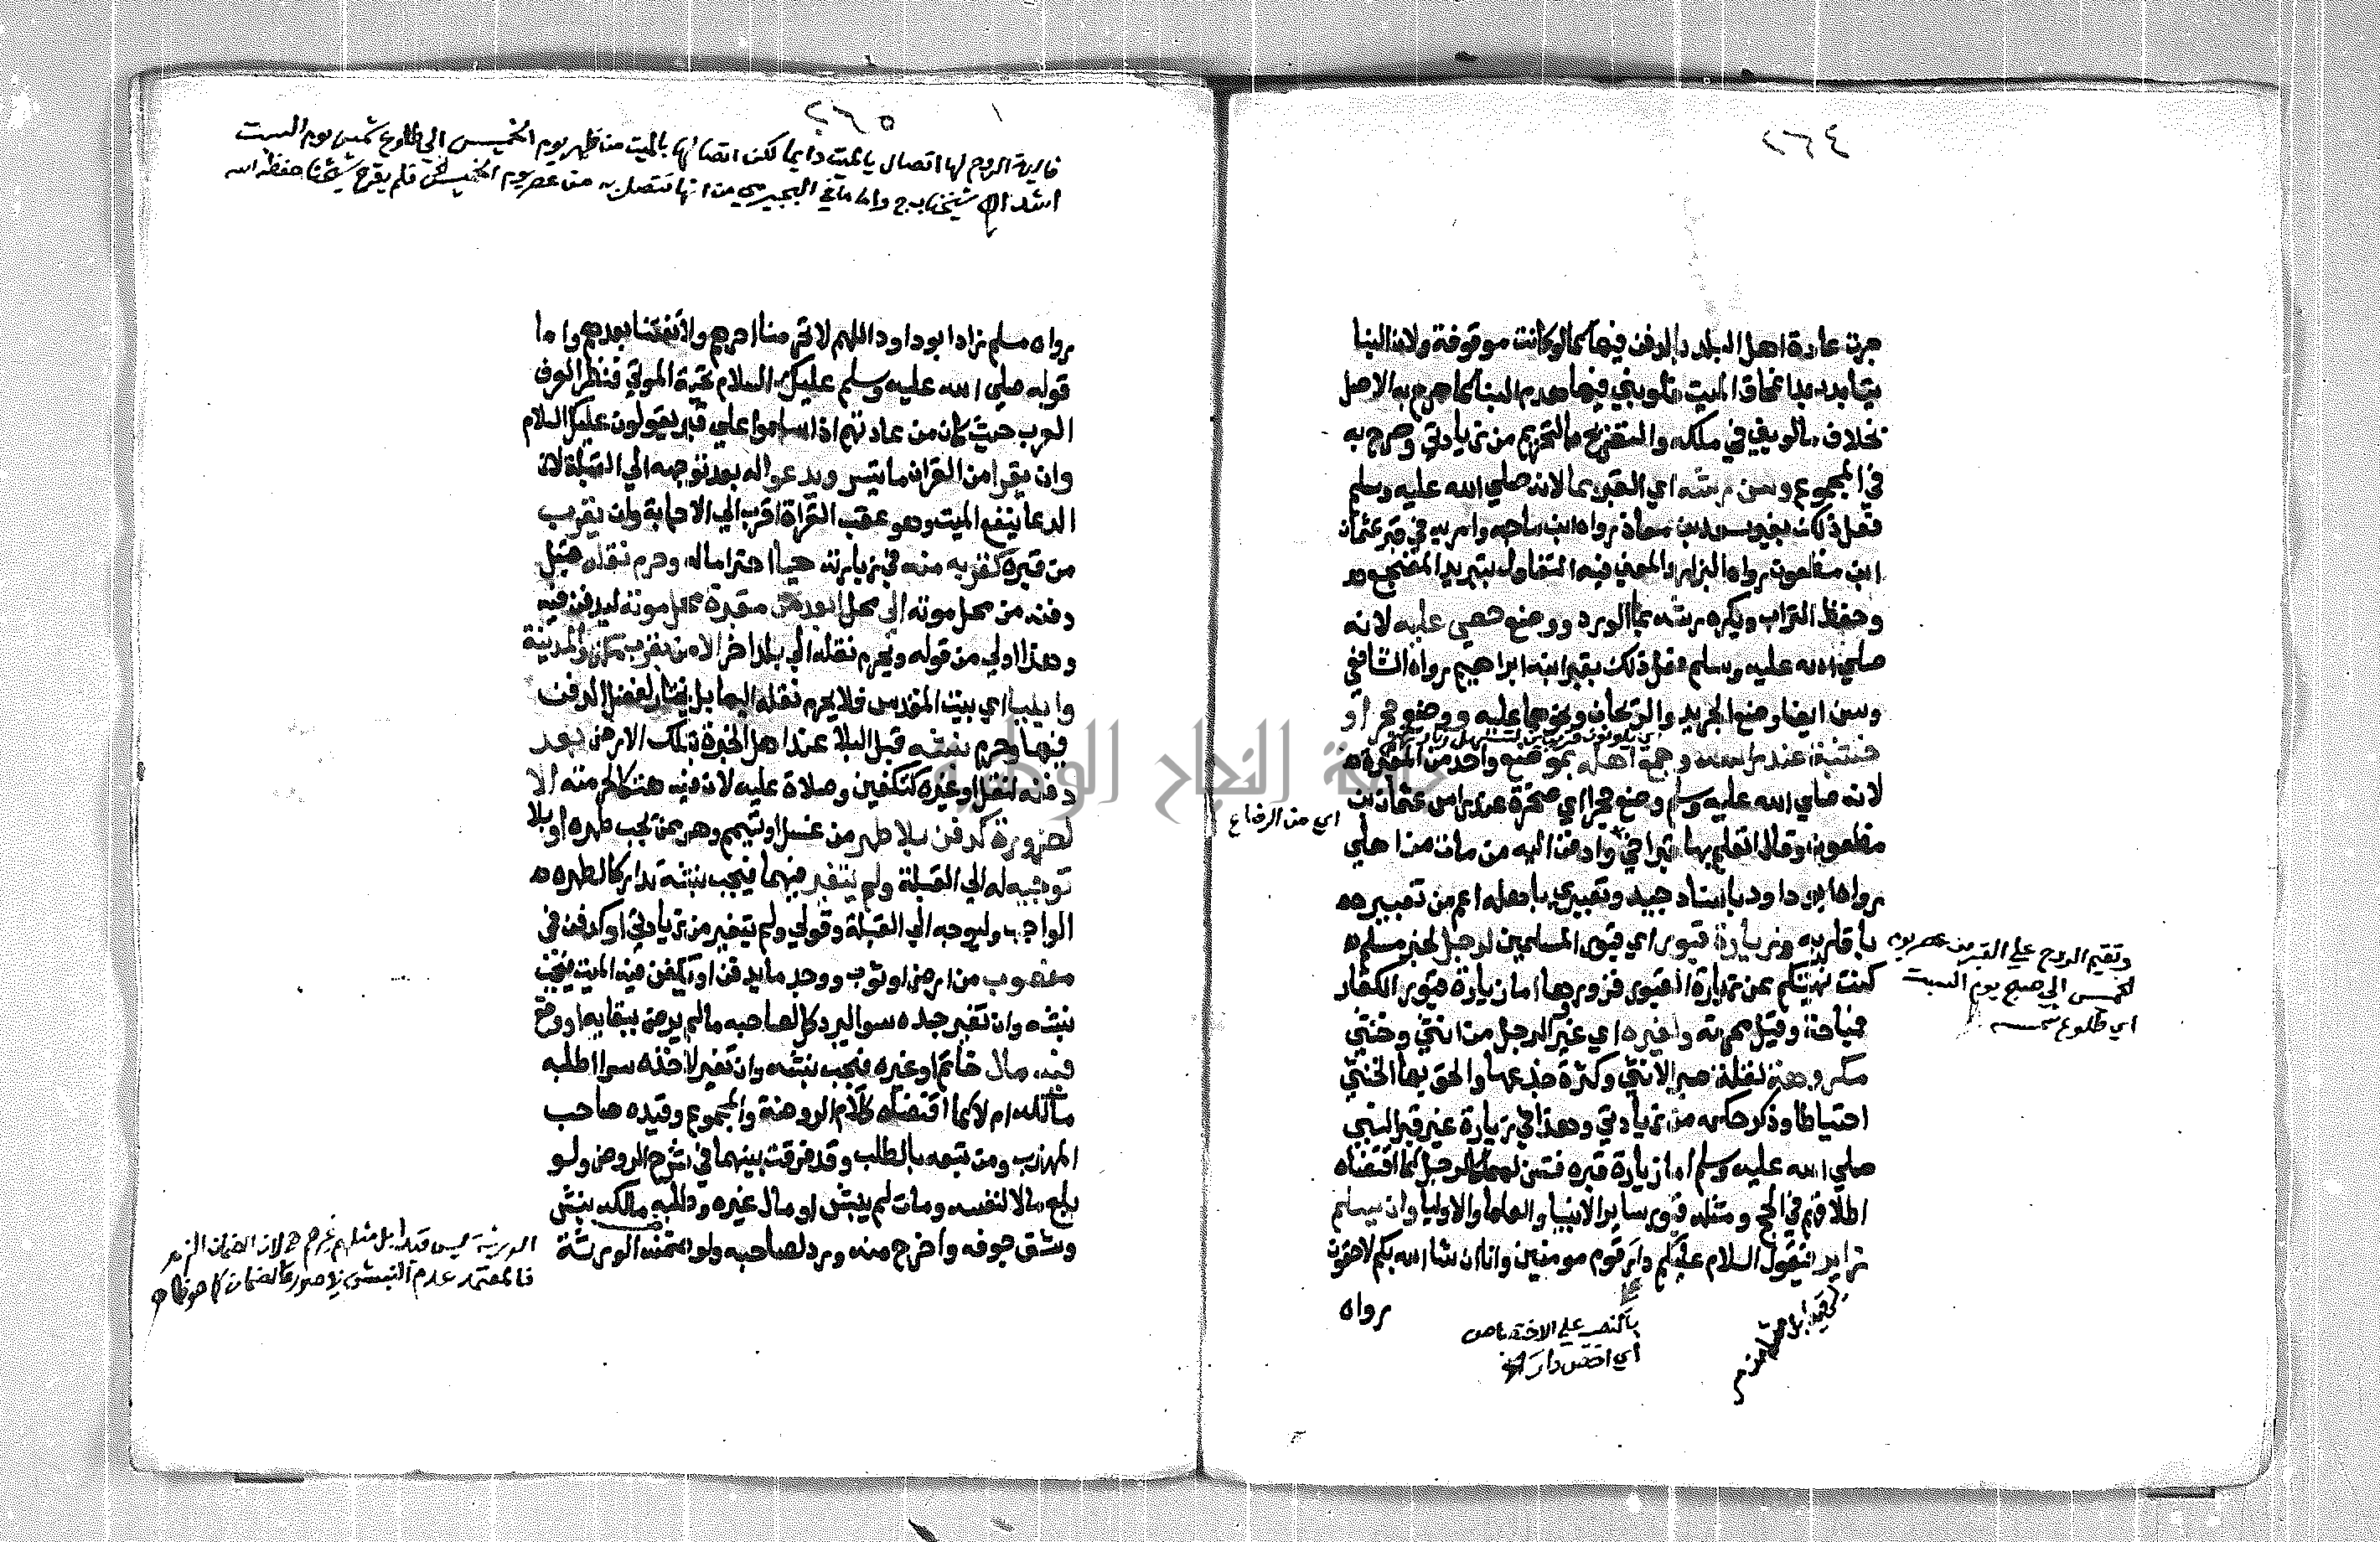 ٢٦٤
جرت عادة اهل البلد بالدفن فيها كما لو كانت موقوفة ولان البنا
يتابد بعد انمحاق الميت فلو بني فيها هدم البنا كما صرح به الاصل
بخلاف مالو بني في ملكه والتصريح بالتحريم من زيادتي وصرح به
في المجموع وسن رشه اي القبر بما لانه صلي الله عليه وسلم
فعل ذلك بقبر سعد بن معاذ رواه ابن ماجه وامر به في قبر عثمان
ابن مظعون رواه البزار والمعني فيه التفاول بتبريد المضجع
وحفظ التراب ويكره رشه بماالورد ووضع حصي عليه لانه
صلي الله عليه وسلم فعل ذلك بقبر ابنه ابراهيم رواه الشافعي
وسن ايضا وضع الجريد والريحان ونحوهما عليه ووضع حجر او
خشبة عند راسه وجمع اهله بموضع واحد من المقبرة
لانه صلي الله عليه وسلم وضع حجرا اي صخرة عند راس عثمان بن
اي من الرضاع
مظعون وقال اتعلم بها قبر اخي وادفن اليه من مات من اهلي
رواه ابو داود باسناد جيد وتعبيري باهله اعم من تعبيره
باقاربه وزيارة قبور اي قبور المسلمين لرجل لخبر مسلم
كنت نهيتكم عن زيارة القبور فزوروها اما زيارة قبور الكفار
وتقيم الروح علي القبر من عصر يوم
الخميس الي صبح يوم السبت
اي طلوع شمسه
فمباحة وقيل محرمة ولغيره اي غير الرجل من انثي وخنثي
مكروهة لقلة صبر الانثي وكثرة جزعها والحق بها الخنثي
احتياطا وذكر حكمه من زيادتي وهذا في زيارة غير قبر النبي
صلي الله عليه وسلم اما زيارة قبره فتسن لهما كالرجل كما اقتضاه
اطلاقهم في الحج ومثله قبور ساير الانبيا والعلما والاوليا وان يسلم
زاير فيقول السلام عليكم دار قوم مومنين وانا ان شا الله بكم لاحقون
رواه
بالنصب علي الاختصاص
اي اخص دار
٢٦٥
فايدة الروح لها اتصال بالميت دايما لكن اتصالها بالميت من ظهر يوم الخميس الي طلوع شمس يوم السبت
اشد شيخنا ح واما ما في البجيرمي من انها تتصل به من عصر يوم الخميس فلم يقره شيخنا حفظه الله
رواه مسلم زاد ابو داود اللهم لا تحرمنا اجرهم ولا تفتنا بعدهم واما
قوله صلي الله عليه وسلم عليك السلام تحية الموتي فنظرا لعرف
العرب حيث كان من عادتهم اذا سلموا علي قبر يقولون عليك السلام
وان يقرا من القران ما تيسر ويدعوا له بعد توجهه الي القبلة لان
الدعا ينفع الميت وهو عقب القراة اقرب الي الاجابة وان يقرب
من قبره كقربه منه في زيارته حيا احتراما له وحرم نقله قبل
دفنه من محل موته الي محل ابعد من مقبرة محل موته ليدفن فيه
وهذا اولي من قوله ويحرم نقله الي بلد اخر الا من بقرب مكة والمدينة
وايليا اي بيت المقدس فلا يحرم نقله اليها بل يختار لفضل الدفن
فيها وحرم نبشه قبل البلا عند اهل الخبرة بتلك الارض بعد
دفنه لنقل او غيره كتكفين وصلاة عليه لان فيه هتكا لحرمته الا
لضرورة كدفن بلا طهر من غسل او تيمم وهو ممن يجب طهره او بلا
توجيه له الي القبلة ولم يتغير فيهما فيجب نبشه تداركا لطهره
الواجب وليوجه الي القبلة وقولي ولم يتغير من زيادتي او كدفن في
مغصوب من ارض او ثوب ووجد ما يدفن او يكفن فيه الميت فيجب
نبشه وان تغير جسده سوا ليرد كل لصاحبه مالم يرض ببقايه او وقع
فيه مال خاتم او غيره فيجب نبشه وان تغير لاخذه سوا اطلبه
مالكه ام لا كما اقتضاه كلام الروضة والمجموع وقيده صاحب
المهذب ومن تبعه بالطلب وقد فرقت بينهما في شرح الروض ولو
بلع مالا لنفسه ومات لم ينبش او مال غيره وطلبه مالكه نبش
وشق جوفه واخرج منه ورد لصاحبه ولو ضمنه الورثة
الورثة ليس قيدا بل مثلهم غيرهم لان الضمان
فالمعتمد عدم النبش في صورة الضمان